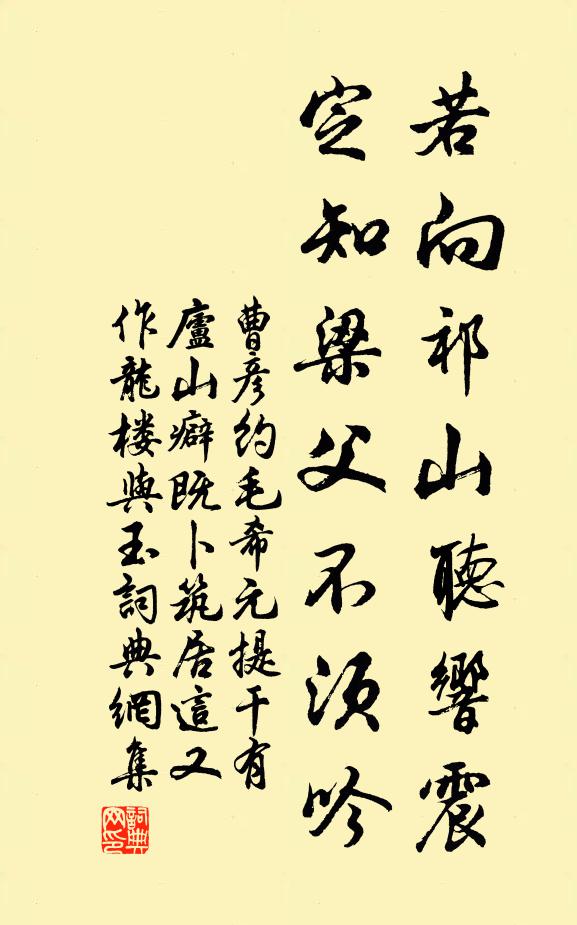 若向祁山聽響震
定知梁父不須吟
曹彥約毛希元提干有
廬山癖既卜筑居這又
作龍楼與玉詞典網集
詞典
网印